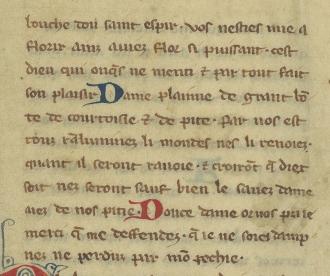 louche dou saint espir · vos nesties mie a
florir ainz auiez flor si puissant · cest
dieu qui onq̄s ne menti ⁊ par tout fait
son plaisir Dame plainne de grant bō
te de courtoisie ⁊ de pite · Par uos est
touz ralluminez li mondes nes li renoiez ·
quant il seront rauoie · ⁊ croirōt q̄ diex
soit nez seront sauf bien le sauez dame
aiez de nos pitie · Douce dame or uos pri ie
merci q̄ me deffendez · q̄ ie ne soie damp
nez ne perduz par mō pechie ·